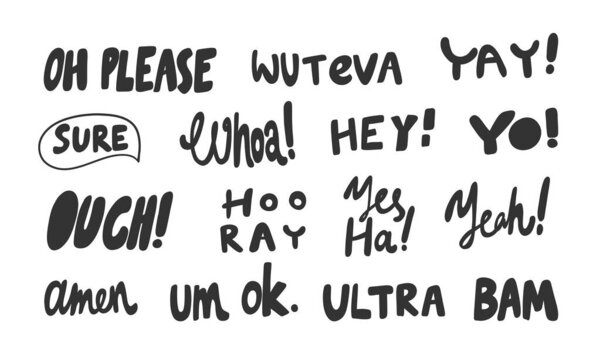 OH PLEASE
WUTEVA
YAY!
SURE
Whoa!
HEY!
YO!
OUCH!
HOO
RAY
Yes
Ha!
Yeah!
amen
um ok.
ULTRA
BAM